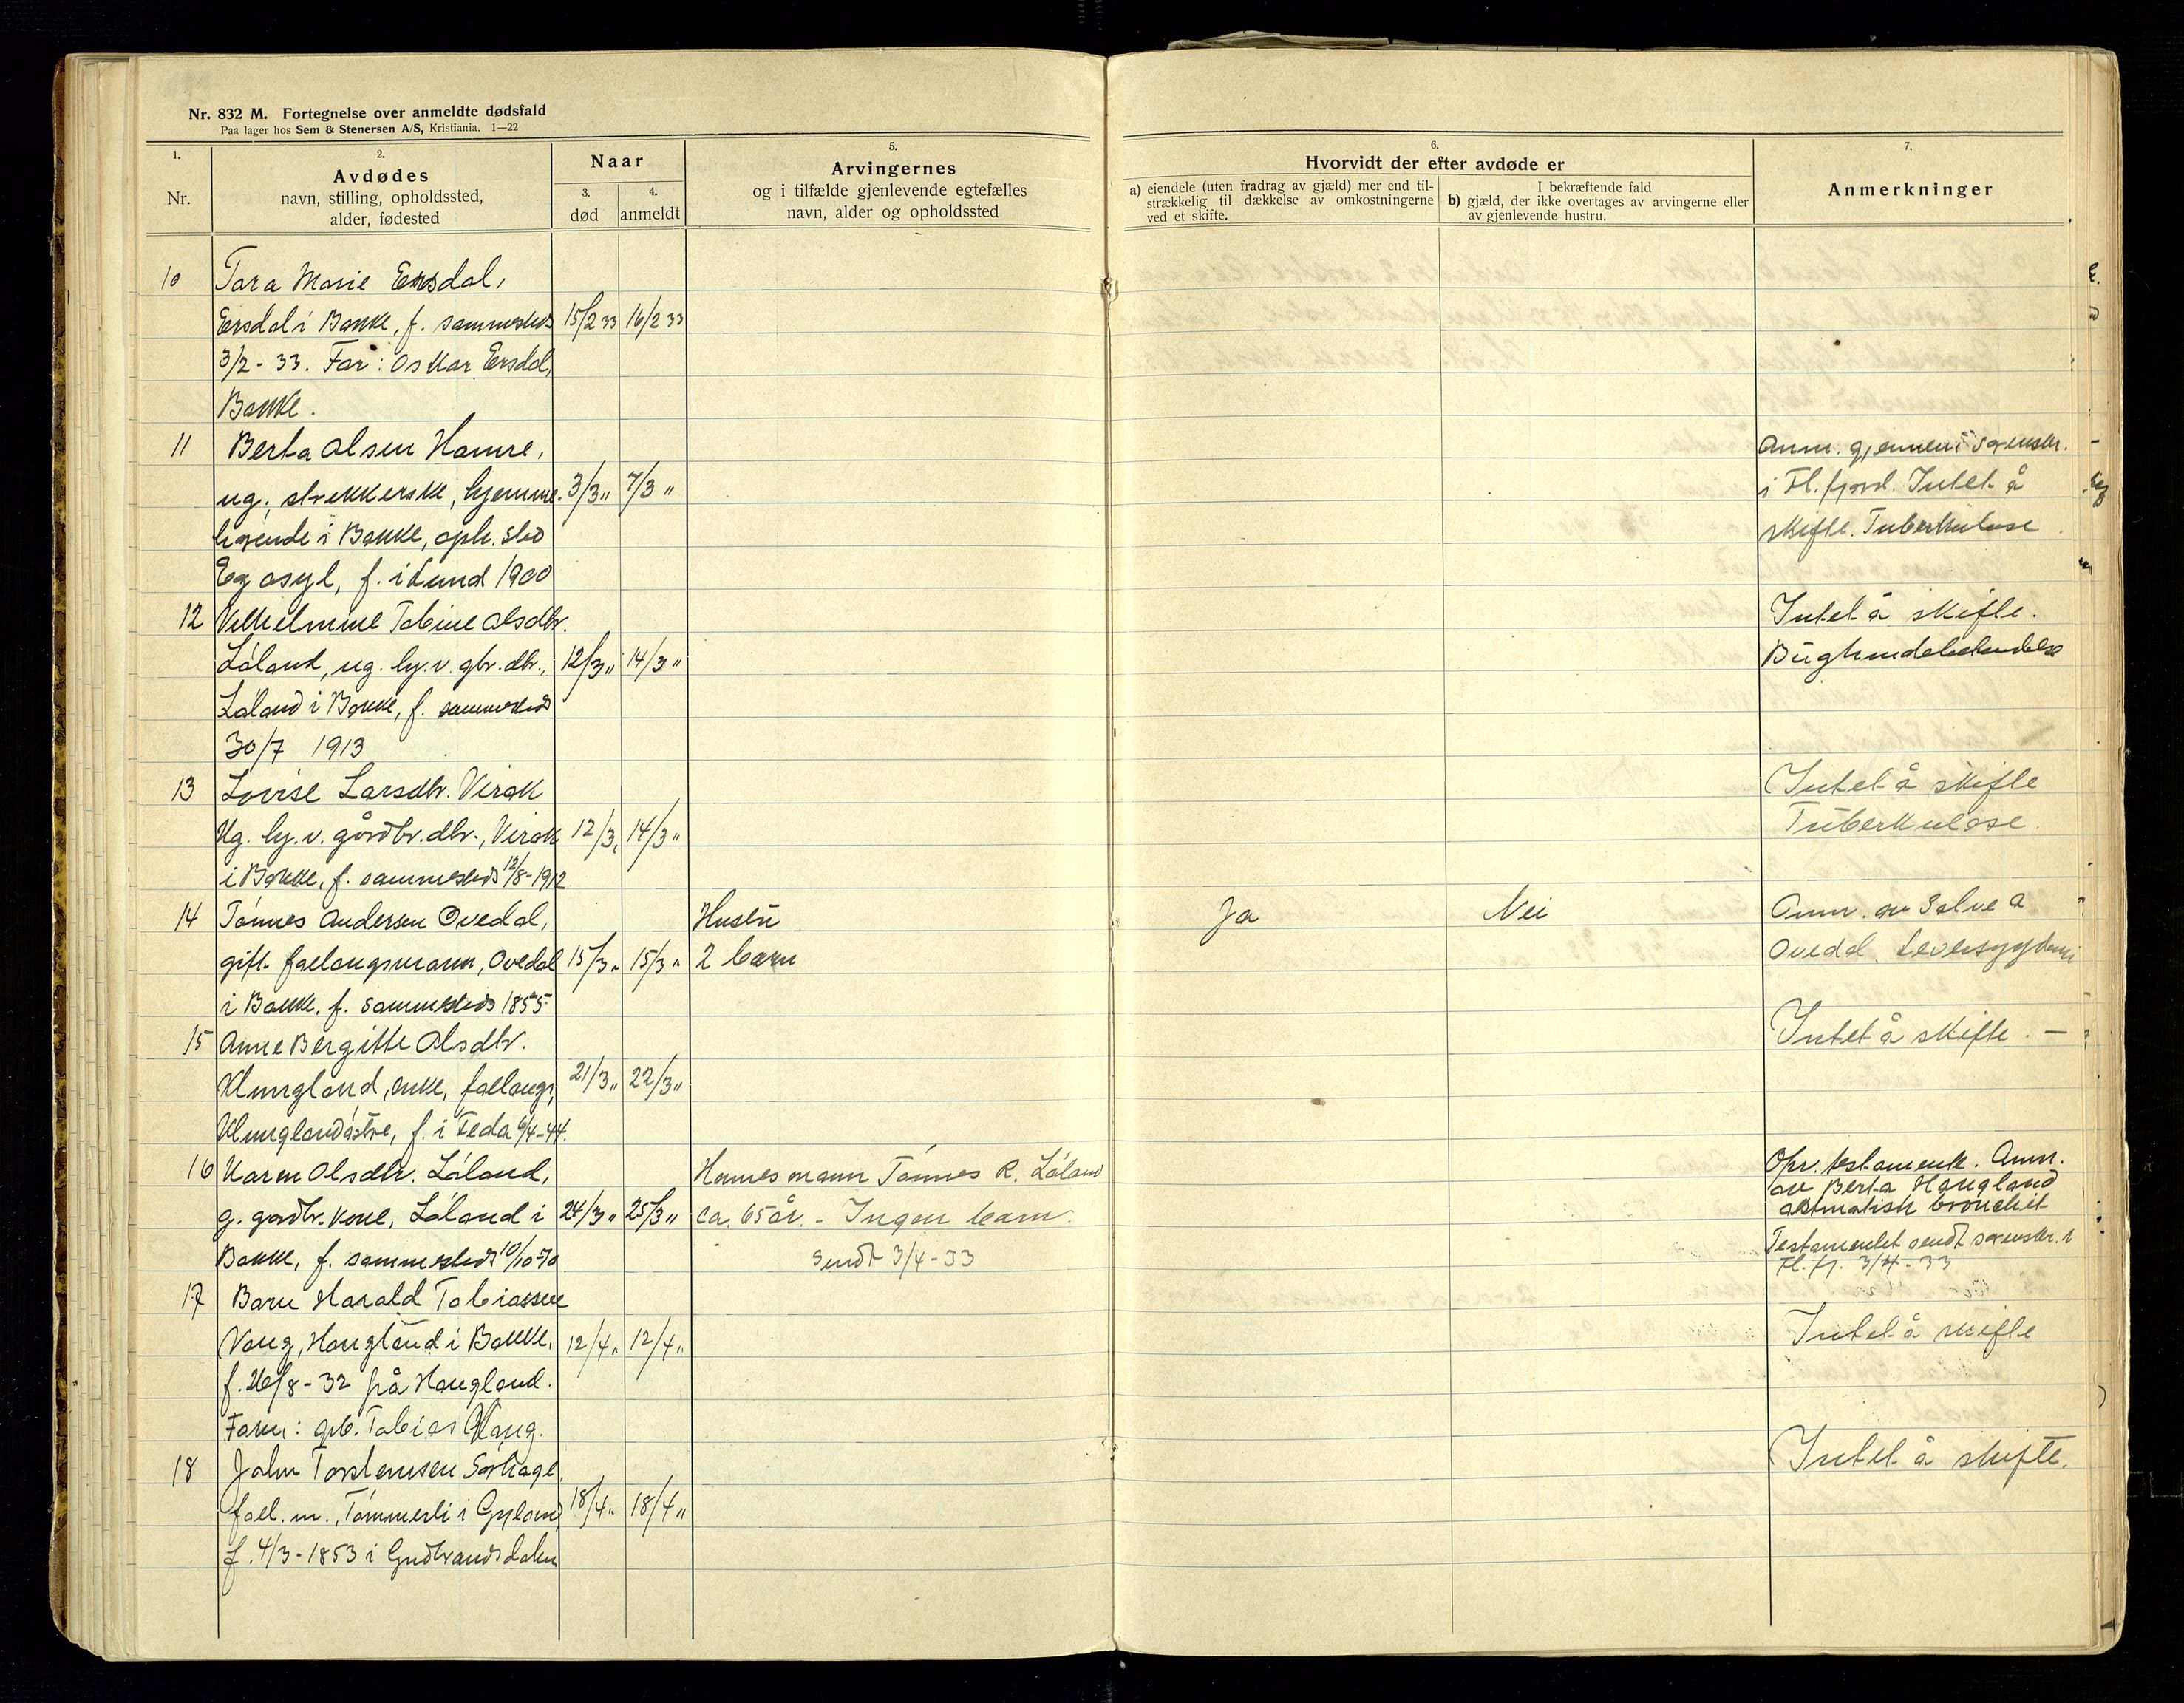 Nr. 832 M. Fortegnelse over anmeldte dødsfald
Paa lager hos Sem & Stenersen A/S, Kristiania. 1—22
1.
Nr.
2.
Avdødes
navn, stilling, opholdssted,
alder, fødested
Naar
3.
død
4.
anmeldt
5.
Arvingernes
og i tilfælde gjenlevende egtefælles
navn, alder og opholdssted
6.
Hvorvidt der efter avdøde er
a) eiendele (uten fradrag av gjæld) mer end til-
strækkelig til dækkelse av omkostningerne
ved et skifte.
I bekræftende fald
b) gjæld, der ikke overtages av arvingerne eller
av gjenlevende hustru.
7.
Anmerkninger
10 Tora Marie Eersdal,
Eersdal i Bakke, f. sammesteds 15/2 33 16/2 33
3/2 - 33. Far: Oskar Eersdal,
Bakke.
11 Berta Olsen Hamre, Anm. gjennem sorenskr.
ug. strekkerske, hjemme- 3/3 " 7/3 " i Fl. fjord. Intet å
hørende i Bakke, oph. sted skifte. Tuberkulose
Eg asyl, f. i Lund 1900
12 Vilhelmine Tobine Olsdtr. Intet å skifte.
Låland, ug. hj. v. gbr. dtr., 12/3 " 14/3 " Bughindebetendelse
Låland i Bakke, f. sammesteds
30/7 1913
13 Lovise Larsdtr. Virak Intet å skifte
Ug. hj. v. gårdbr. dtr., Virak 12/3 " 14/3 " Tuberkulose.
i Bakke, f. sammesteds 12/8 - 1912
14 Tønnes Andersen Ovedal, Hustru Ja Nei Anm. av Salve A
gift faelaugsmann, Ovedal 15/3 " 15/3 " 2 barn Ovedal. Leversygdom
i Bakke, f. sammesteds 1855
15 Anne Bergitte Olsdtr. Intet å skifte. —
Klungland, enke, faelaugs, 21/3 " 22/3 "
Klunglandåstre, f. i Feda 6/4 - 44.
16 Karen Olsdtr. Låland, Hennes mann Tønnes R. Låland Opr. testamente. Anm.
av Berta Haugland
g. gårdbr. kone, Låland i 24/3 " 25/3 " ca. 65 år. - Ingen barn. astmatisk bronchit
Bakke, f. sammesteds 10/10 - 70 Sendt 3/4 - 33 Testamentet sendt sorenskr. i
Fl. fj. 3/4 - 33
17 Barn Harald Tobiassen
Vang, Haugland i Bakke, 12/4 " 12/4 " Intet å skifte
f. 26/8 - 32 på Haugland.
Faren: grb. Tobias Vang.
18 John Torstensen Sørhage, Intet å skifte.
fael. m., Tømmerli i Gyland, 18/4 " 18/4 "
f. 4/3 - 1853 i Gudbrandsdalen